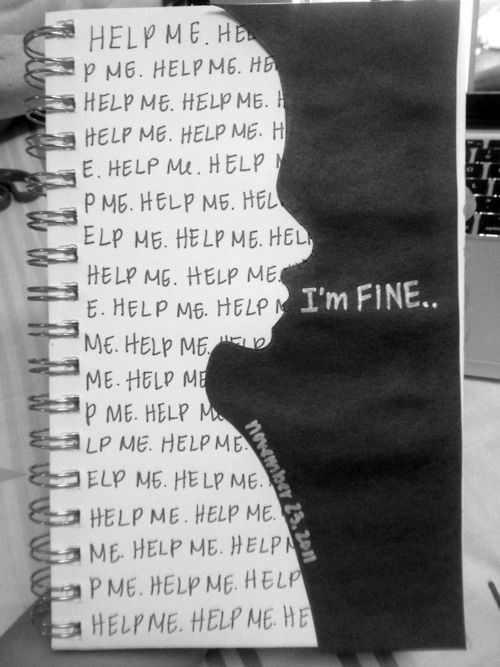 HELP ME. HEL
P ME. HELP ME. HE
HELP ME. HELP ME. H
HELP ME. HELP ME. H
E. HELP Me. HELP M
P ME. HELP ME. HEL
ELP ME. HELP ME. HELP
HELP ME. HELP ME.
I'm FINE..
E. HELP ME. HELP M
ME. HELP ME. HELP
ME. HELP ME
P ME. HELP M
LP ME. HELP ME.
november 23, 2011
ELP ME. HELP ME.
HELP ME. HELP ME.
ME. HELP ME. HELP M
P ME. HELP ME. HELP
HELP ME. HELP ME. HE